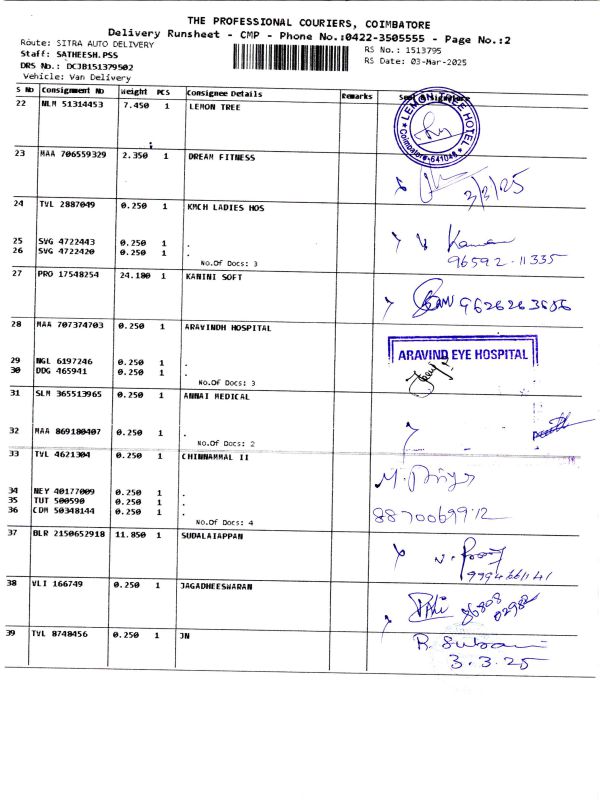 THE PROFESSIONAL COURIERS, COIMBATORE
Delivery Runsheet - CMP - Phone No.:0422-3505555 - Page No.:2
Route: SITRA AUTO DELIVERY
RS No.: 1513795
Staff: SATHEESH.PSS
RS Date: 03-Mar-2025
DRS No.: DCJB151379502
Vehicle: Van Delivery
S No Consignment No Weight PCS Consignee Details Remarks
22 NLM 51314453 7.450 1 LEMON TREE
LEMON TREE HOTEL
Coimbatore-641048
23 MAA 706559329 2.350 1 DREAM FITNESS
3/3/25
24 TVL 2887049 0.250 1 KMCH LADIES HOS
25 SVG 4722443 0.250 1 .
26 SVG 4722420 0.250 1 .
96592-11335
No.Of Docs: 3
27 PRO 17548254 24.180 1 KANINI SOFT
9626263656
28 MAA 707374703 0.250 1 ARAVINDH HOSPITAL
ARAVIND EYE HOSPITAL
29 NGL 6197246 0.250 1 .
30 DDG 465941 0.250 1 .
No.Of Docs: 3
31 SLM 365513965 0.250 1 ANNAI MEDICAL
32 MAA 869180407 0.250 1 .
No.Of Docs: 2
33 TVL 4621304 0.250 1 CHINNAMMAL II
34 NEY 40177009 0.250 1 .
35 TUT 500590 0.250 1 .
36 CDM 50348144 0.250 1 .
8870069912
No.Of Docs: 4
37 BLR 2150652918 11.850 1 SUDALAIAPPAN
9994661141
38 VLI 166749 0.250 1 JAGADHEESWARAN
86808
02982
39 TVL 8748456 0.250 1 JN
3.3.25